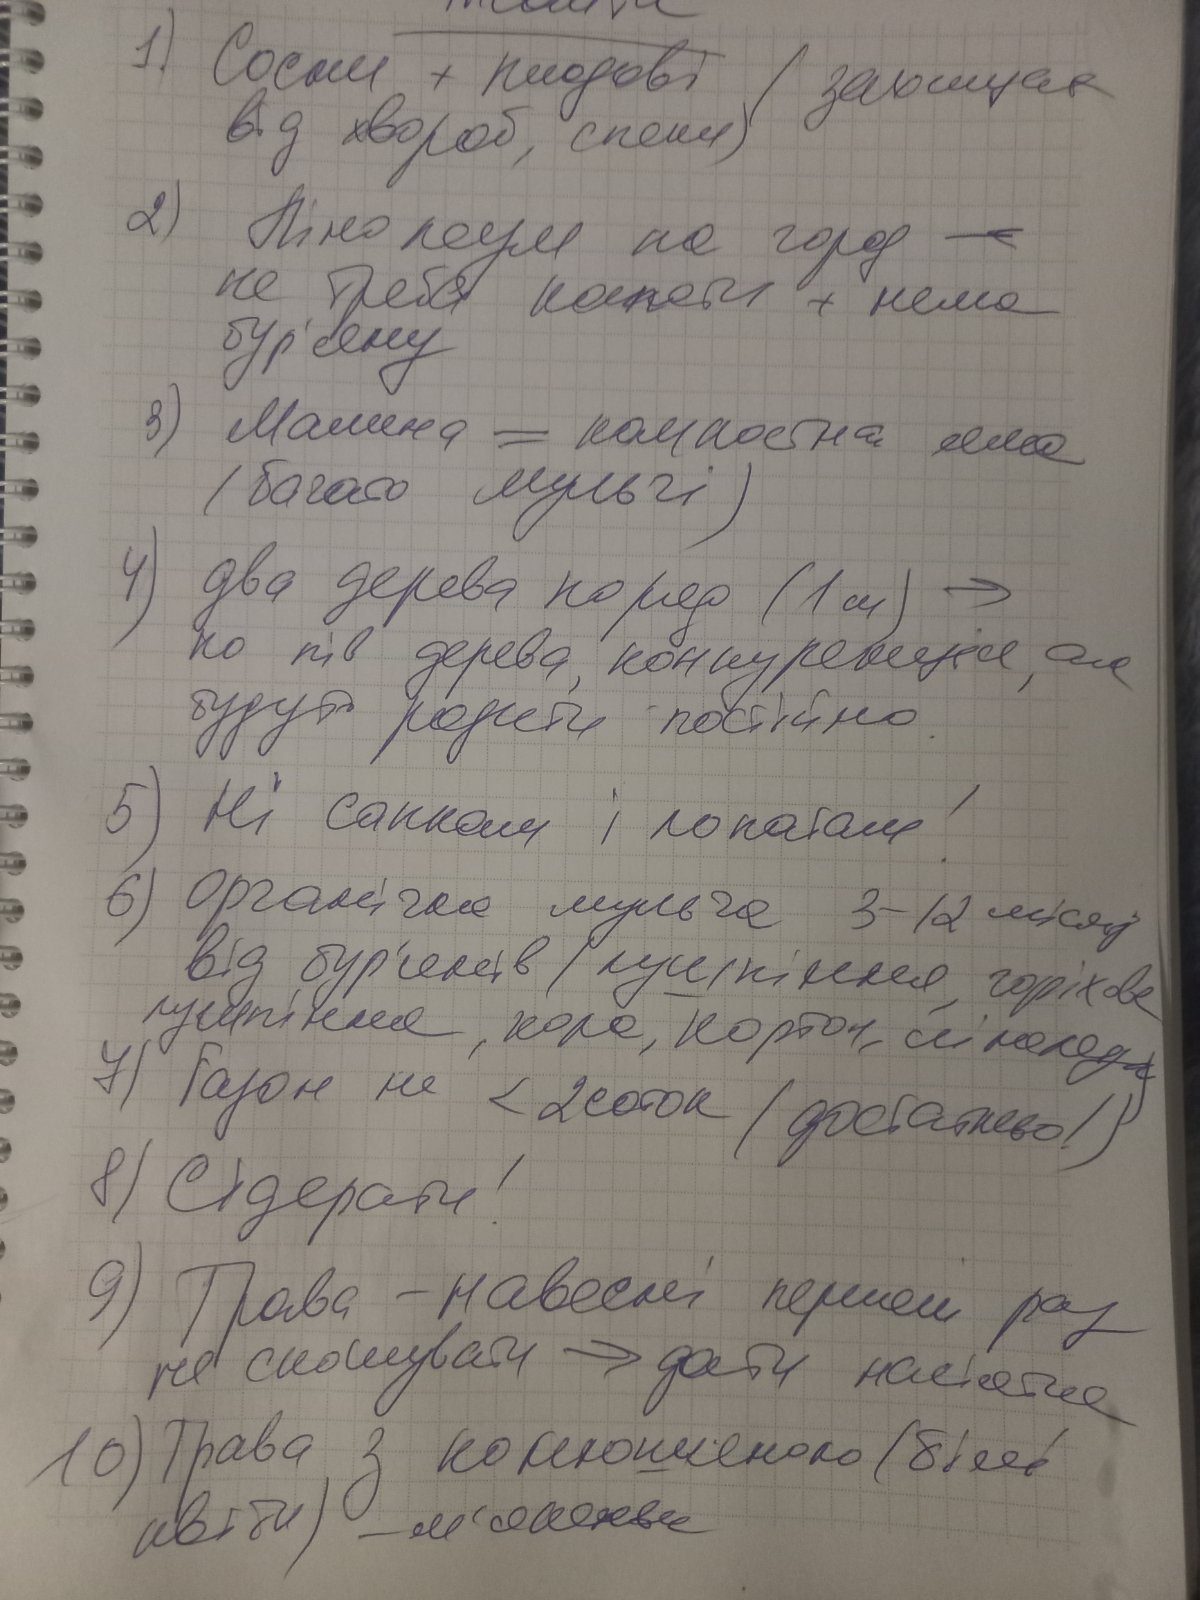 1) Сосни + плодові (захищає
від хвороб, спеки)
2) Лінолеум на город –
не треба копати + нема
бур'яну
3) Малина = компостна яма
(багато мульчі)
4) два дерева поряд (1 м) →
по пів дерева, конкуренція, але
будуть родити постійно.
5) Ні сапкам і лопатам!
6) Органічна мульча 3-12 місяці
від бур'янів (лушпіння, горіхове
лушпіння, кора, картон,
7) Газон не < 2 соток (достатньо!)
8) Сідерати!
9) Трава – навесні перший раз
не скошувати → дати насіятися
10) Трава з конюшиною (білі
квіти) –